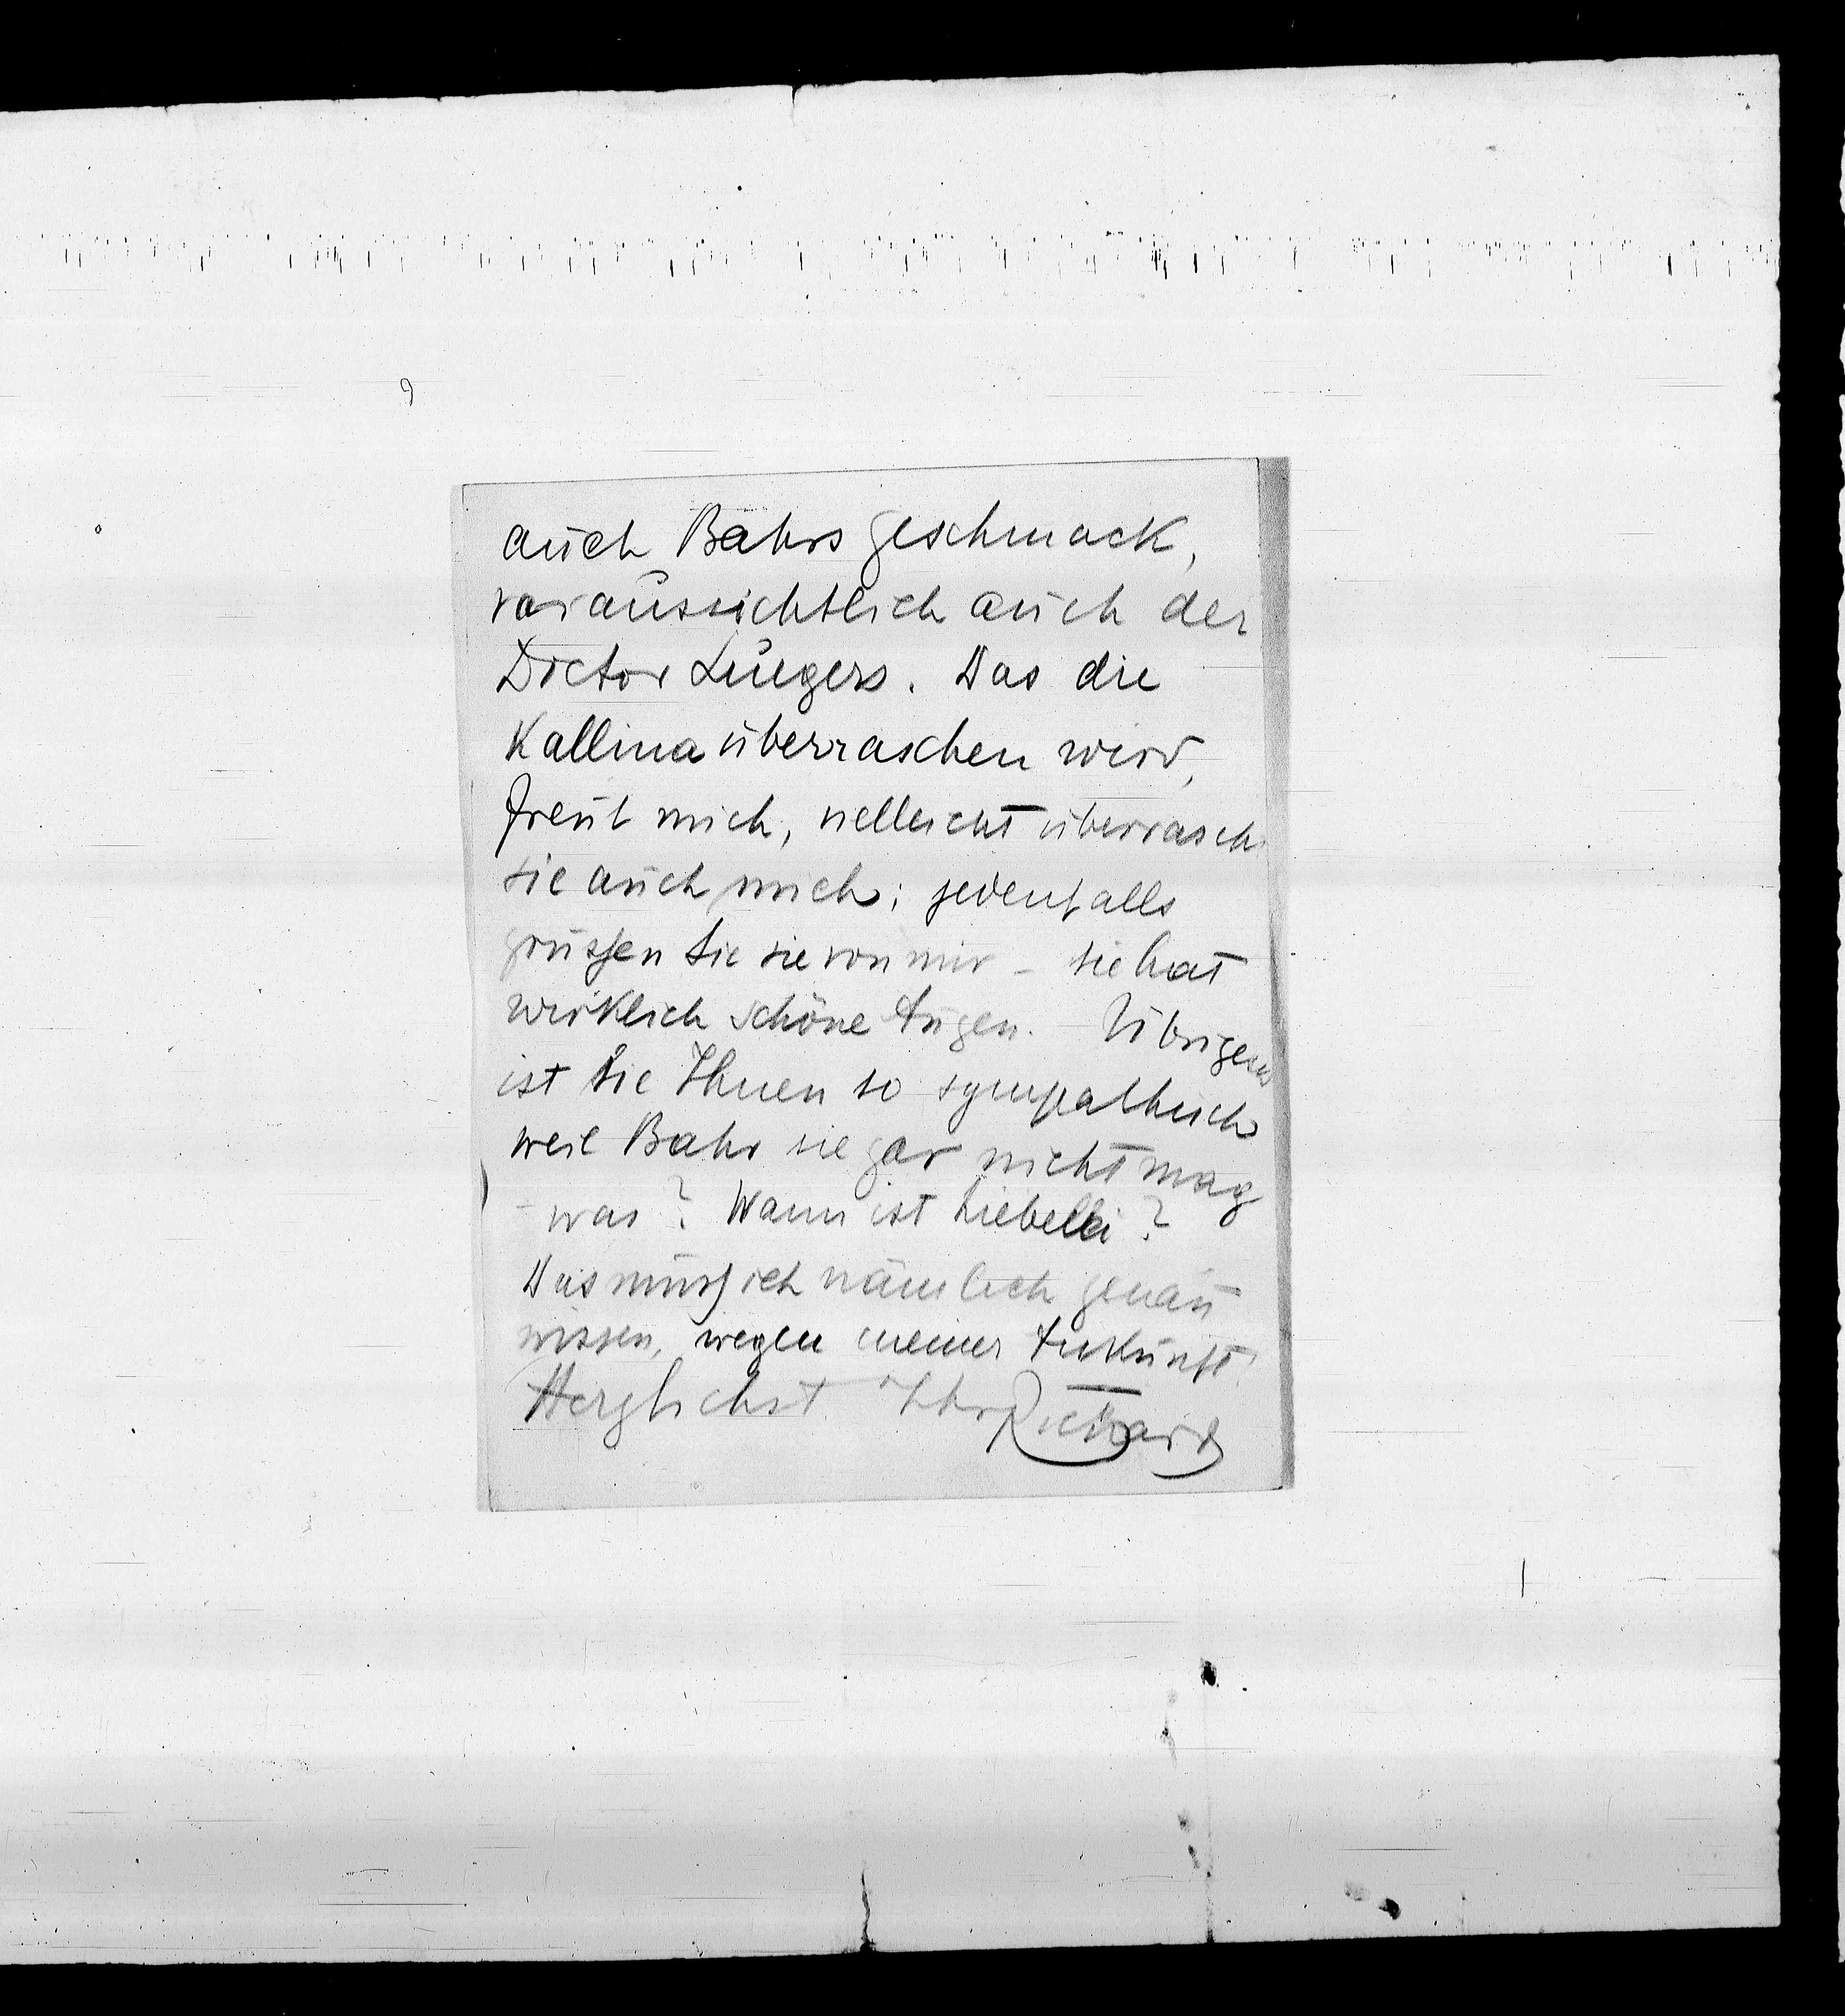 auch Bahrs geschmack,
voraussichtlich auch der
Doctor Luegers. Das die
Kallina überraschen wird,
freut mich, vielleicht überrasch
sie auch mich; jedenfalls
grüssen Sie sie von mir – sie hat
wirklich schöne Augen. Übrigens
ist Sie Ihnen so sympathisch
weil Bahr sie gar nicht mag
– was? Wann ist Liebelei?
Das muss ich nämlich genau
wissen, wegen meiner Ankunft.
Herzlichst Ihr Richard